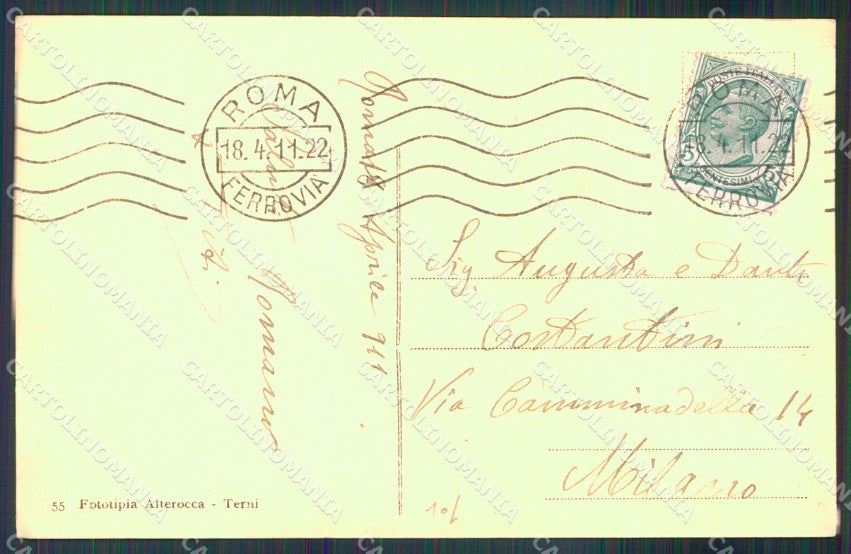 ROMA
18.4.11.22
FERROVIA
ROMA
18.4.11.22
FERROVIA
POSTE ITALIANE
CENTESIMI
5
Roma 18 Aprile 911
Romano
Sig. Augusta e Dante
Costantini
Via Camminadella 14
Milano
55 Fototipia Alterocca - Terni
CARTOLINOMANIA